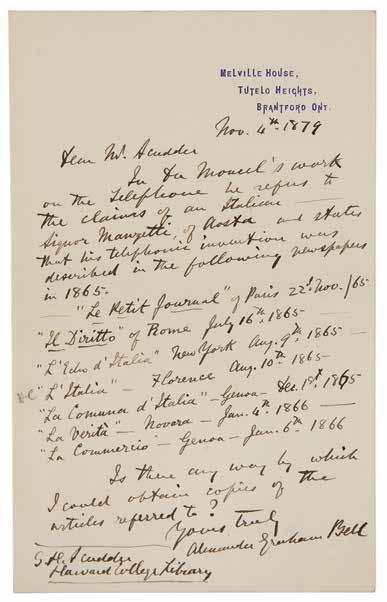 MELVILLE HOUSE,
TUTELO HEIGHTS,
BRANTFORD ONT.
Nov. 4th 1879
Dear Mr Scudder
In Du Moncel's work
on the Telephone he refers to
the claims of an Italian —
Signor Manzetti, of Aosta and states
that his telephonic invention was
described in the following newspapers
in 1865.
— "Le Petit Journal" of Paris 22d. Nov. /65
"Il Diritto" of Rome July 16th 1865 —
"L'Edo d'Italia" New York Aug. 9th 1865 —
"L'Italia" — Florence Aug. 10th 1865 —
"La Comuna d'Italia" — Genoa — Dec. 1st 1865
"La Verità" — Novara — Jan. 4th 1866 —
"La Commercio — Genoa — Jan. 6th 1866
Is there any way by which
I could obtain copies of the
articles referred to?
Yours truly
Alexander Graham Bell
S. H. Scudder
Harvard College Library